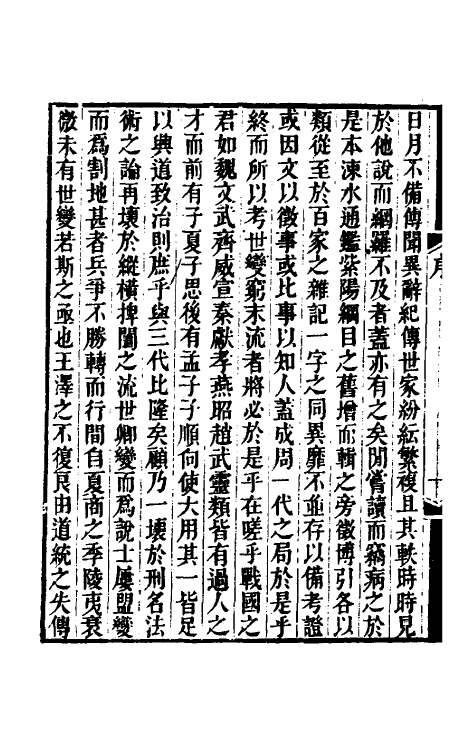 日月不備傳聞異辭紀傳世家紛紜繁複且其軼時時見
於他說而網羅不及者蓋亦有之矣閒嘗讀而竊病之於
是本涑水通鑑紫陽綱目之舊增而輯之旁徵博引各以
類從至於百家之雜記一字之同異靡不並存以備考證
或因文以徵事或比事以知人蓋成周一代之局於是乎
終而所以考世變窮末流者將必於是乎在嗟乎戰國之
君如魏文武齊威宣秦獻孝燕昭趙武靈類皆有過人之
才而前有子夏子思後有孟子子順向使大用其一皆足
以興道致治則庶乎與三代比隆矣顧乃一壞於刑名法
術之論再壞於縱橫捭闔之流世卿變而為說士屢盟變
而為割地甚者兵爭不勝轉而行間自夏商之季陵夷衰
微未有世變若斯之亟也王澤之不復良由道統之失傳
序